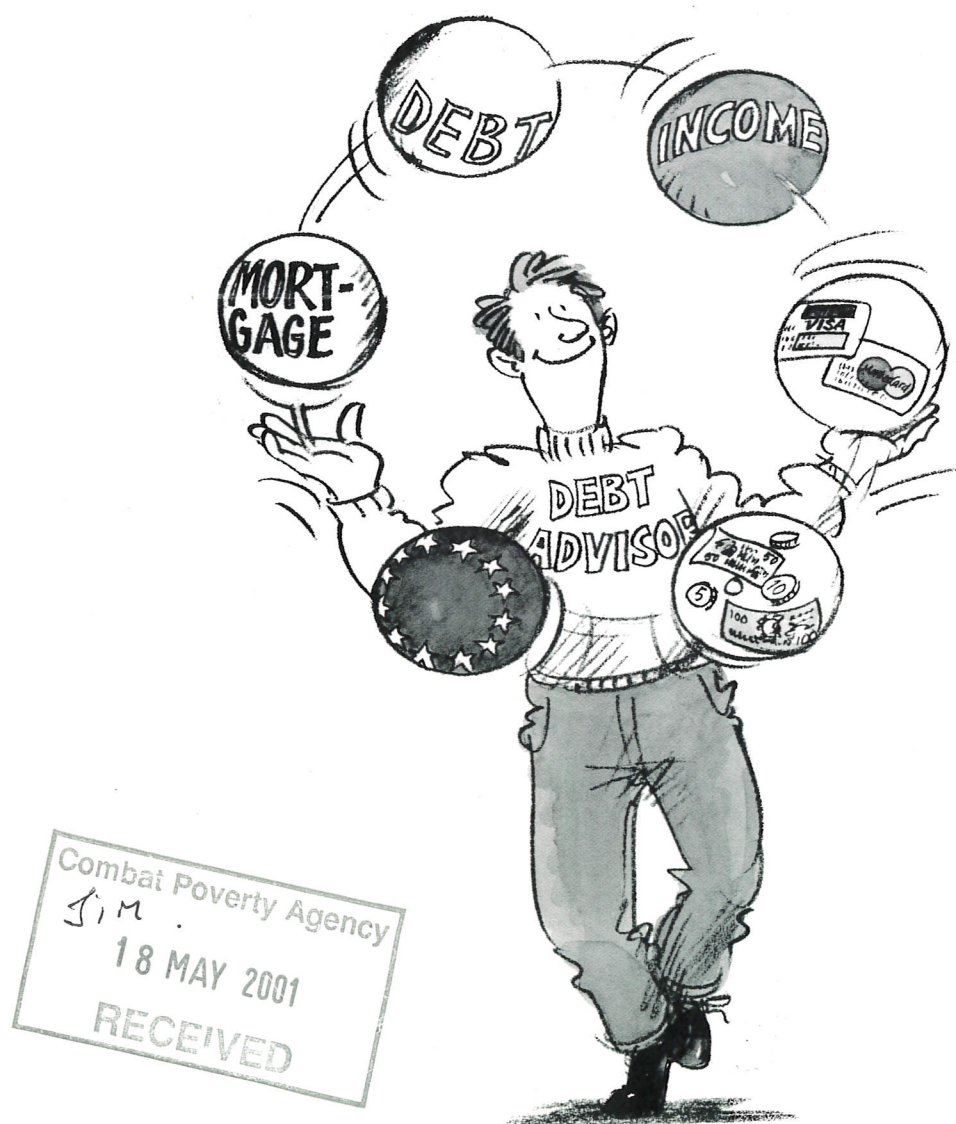 DEBT
INCOME
MORT-
GAGE
VISA
MasterCard
DEBT
ADVISOR
50
50
5
10
100
100
Combat Poverty Agency
JIM.
18 MAY 2001
RECEIVED